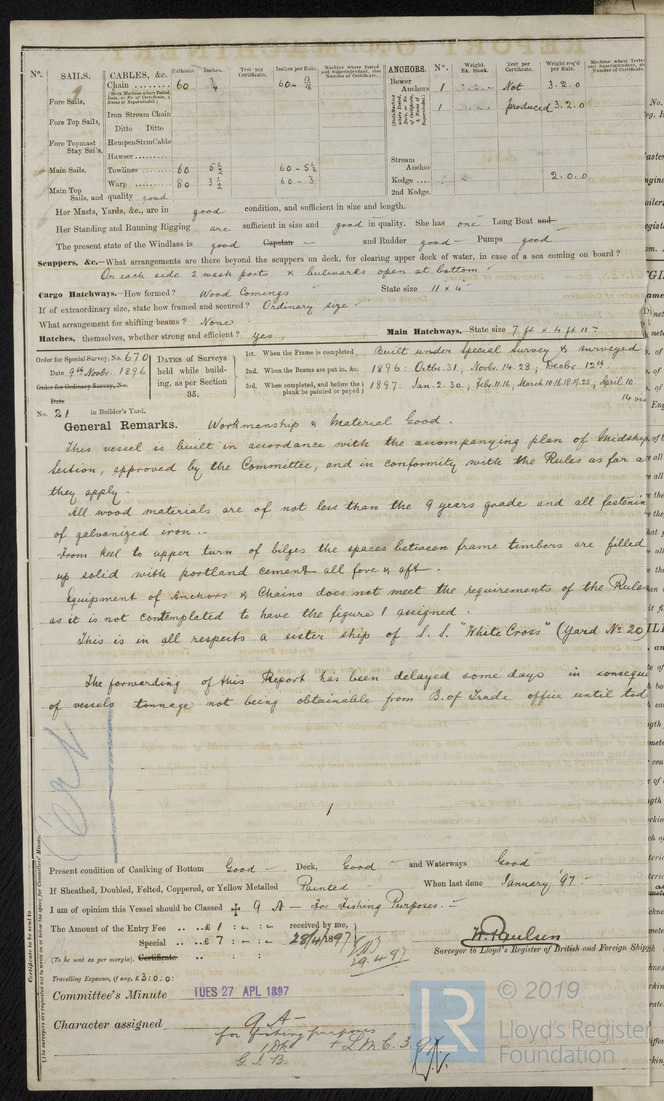 No. SAILS. CABLES, &c. Fathoms. Inches. Test per Certificate. Inches per Rule. Machine where Tested and Superintendent, also Number of Certificate. ANCHORS. No. Weight. Ex. Stock. Test per Certificate. Weight req'd per Rule. Machine where Tested and Superintendent, also Number of Certificate.
Fore Sails, Chain 60 3/4 60 - 13/16 Bower Anchors 1 Not 3.2.0
Fore Top Sails, Iron Stream Chain 1 produced 3.2.0
Ditto Ditto
Fore Topmast Stay Sails, Hempen Strm Cable
Hawser Stream Anchor
Main Sails, Towlines 60 5 1/2 60 - 5 1/2 Kedge 2.0.0
Main Top Sails, and quality good Warp 80 3 1/2 60 - 3 2nd Kedge.
Her Masts, Yards, &c., are in good condition, and sufficient in size and length.
Her Standing and Running Rigging are sufficient in size and good in quality. She has one Long Boat and
The present state of the Windlass is good Capstan - and Rudder good - Pumps good
Scuppers, &c.—What arrangements are there beyond the scuppers on deck, for clearing upper deck of water, in case of a sea coming on board?
On each side 2 wash ports & bulwarks open at bottom
Cargo Hatchways.—How formed? Wood Comings State size 11 x 4
If of extraordinary size, state how framed and secured? Ordinary size
What arrangement for shifting beams? None
Hatches, themselves, whether strong and efficient? yes. Main Hatchways.—State size 7 ft x 4 ft 11"
Order for Special Survey, No. 670
Date 9th Novbr. 1896
Order for Ordinary Survey, No.
Date
No. 21 in Builder's Yard.
DATES of Surveys held while building, as per Section 35.
1st. When the Frame is completed Built under Special Survey & surveyed
2nd. When the Beams are put in, &c. 1896: Octbr. 31; Novbr. 14. 28; Decbr 12th
3rd. When completed, and before the plank be painted or payed 1897 Jan. 2. 30; Feb. 11. 16; March 10. 16. 18. 19. 25; April 10
General Remarks. Workmanship & Material Good.
This vessel is built in accordance with the accompanying plan of Midship
Section, approved by the Committee, and in conformity with the Rules as far a
they apply.
All wood materials are of not less than the 9 years grade and all fastenin
of galvanized iron.
From keel to upper turn of bilges the spaces between frame timbers are filled
up solid with portland cement all fore & aft.
Equipment of Anchors & Chains does not meet the requirements of the Rules
as it is not contemplated to have the figure 1 assigned.
This is in all respects a sister ship of S.S. "White Cross" (Yard No. 20
The forwarding of this Report has been delayed some days in conseque
of vessels tonnage not being obtainable from B. of Trade office until tod
1
Present condition of Caulking of Bottom Good - Deck, Good - and Waterways Good
If Sheathed, Doubled, Felted, Coppered, or Yellow Metalled Painted When last done January '97 -
I am of opinion this Vessel should be Classed + 9 A — For Fishing Purposes. -
The Amount of the Entry Fee £1 : - : - received by me,
Special £7 : - : - 28/4/1897
29.4.97
(To be sent as per margin). Certificate
W. Paulsen
Surveyor to Lloyd's Register of British and Foreign Shipp
Travelling Expenses, if any, £3:0:0:
Committee's Minute TUES 27 APL 1897
Character assigned 9 A -
for fishing purposes
1 Dk + L.M.C. 3.97
G. I. B.
Certificate to be sent to
(The surveyors are requested not to write on or below the space for Committee's Minute.
© 2019
LR
Lloyd's Register
Foundation